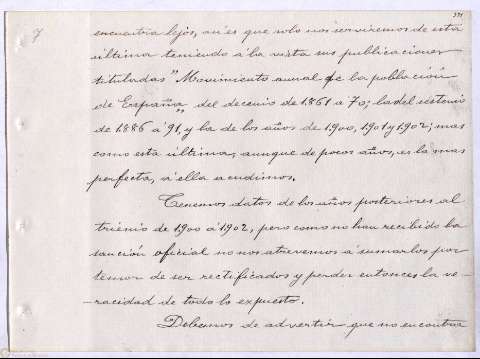 7
encuentra lejos, asi es que solo nos serviremos de esta
última teniendo á la vista sus publicaciones
tituladas "Movimiento anual de la población
de España", del decenio de 1861 a 70; la del setenio
de 1886 á 91, y la de los años de 1900, 1901 y 1902; mas
como esta última, aunque de pocos años, es la mas
perfecta, á ella acudimos.
Tenemos datos de los años posteriores al
trienio de 1900 á 1902, pero como no han recibido la
sanción oficial no nos atrevemos á sumarlos por
temor de ser rectificados y perder entonces la ve-
-racidad de todo lo expuesto.
Debemos de advertir que no encontra